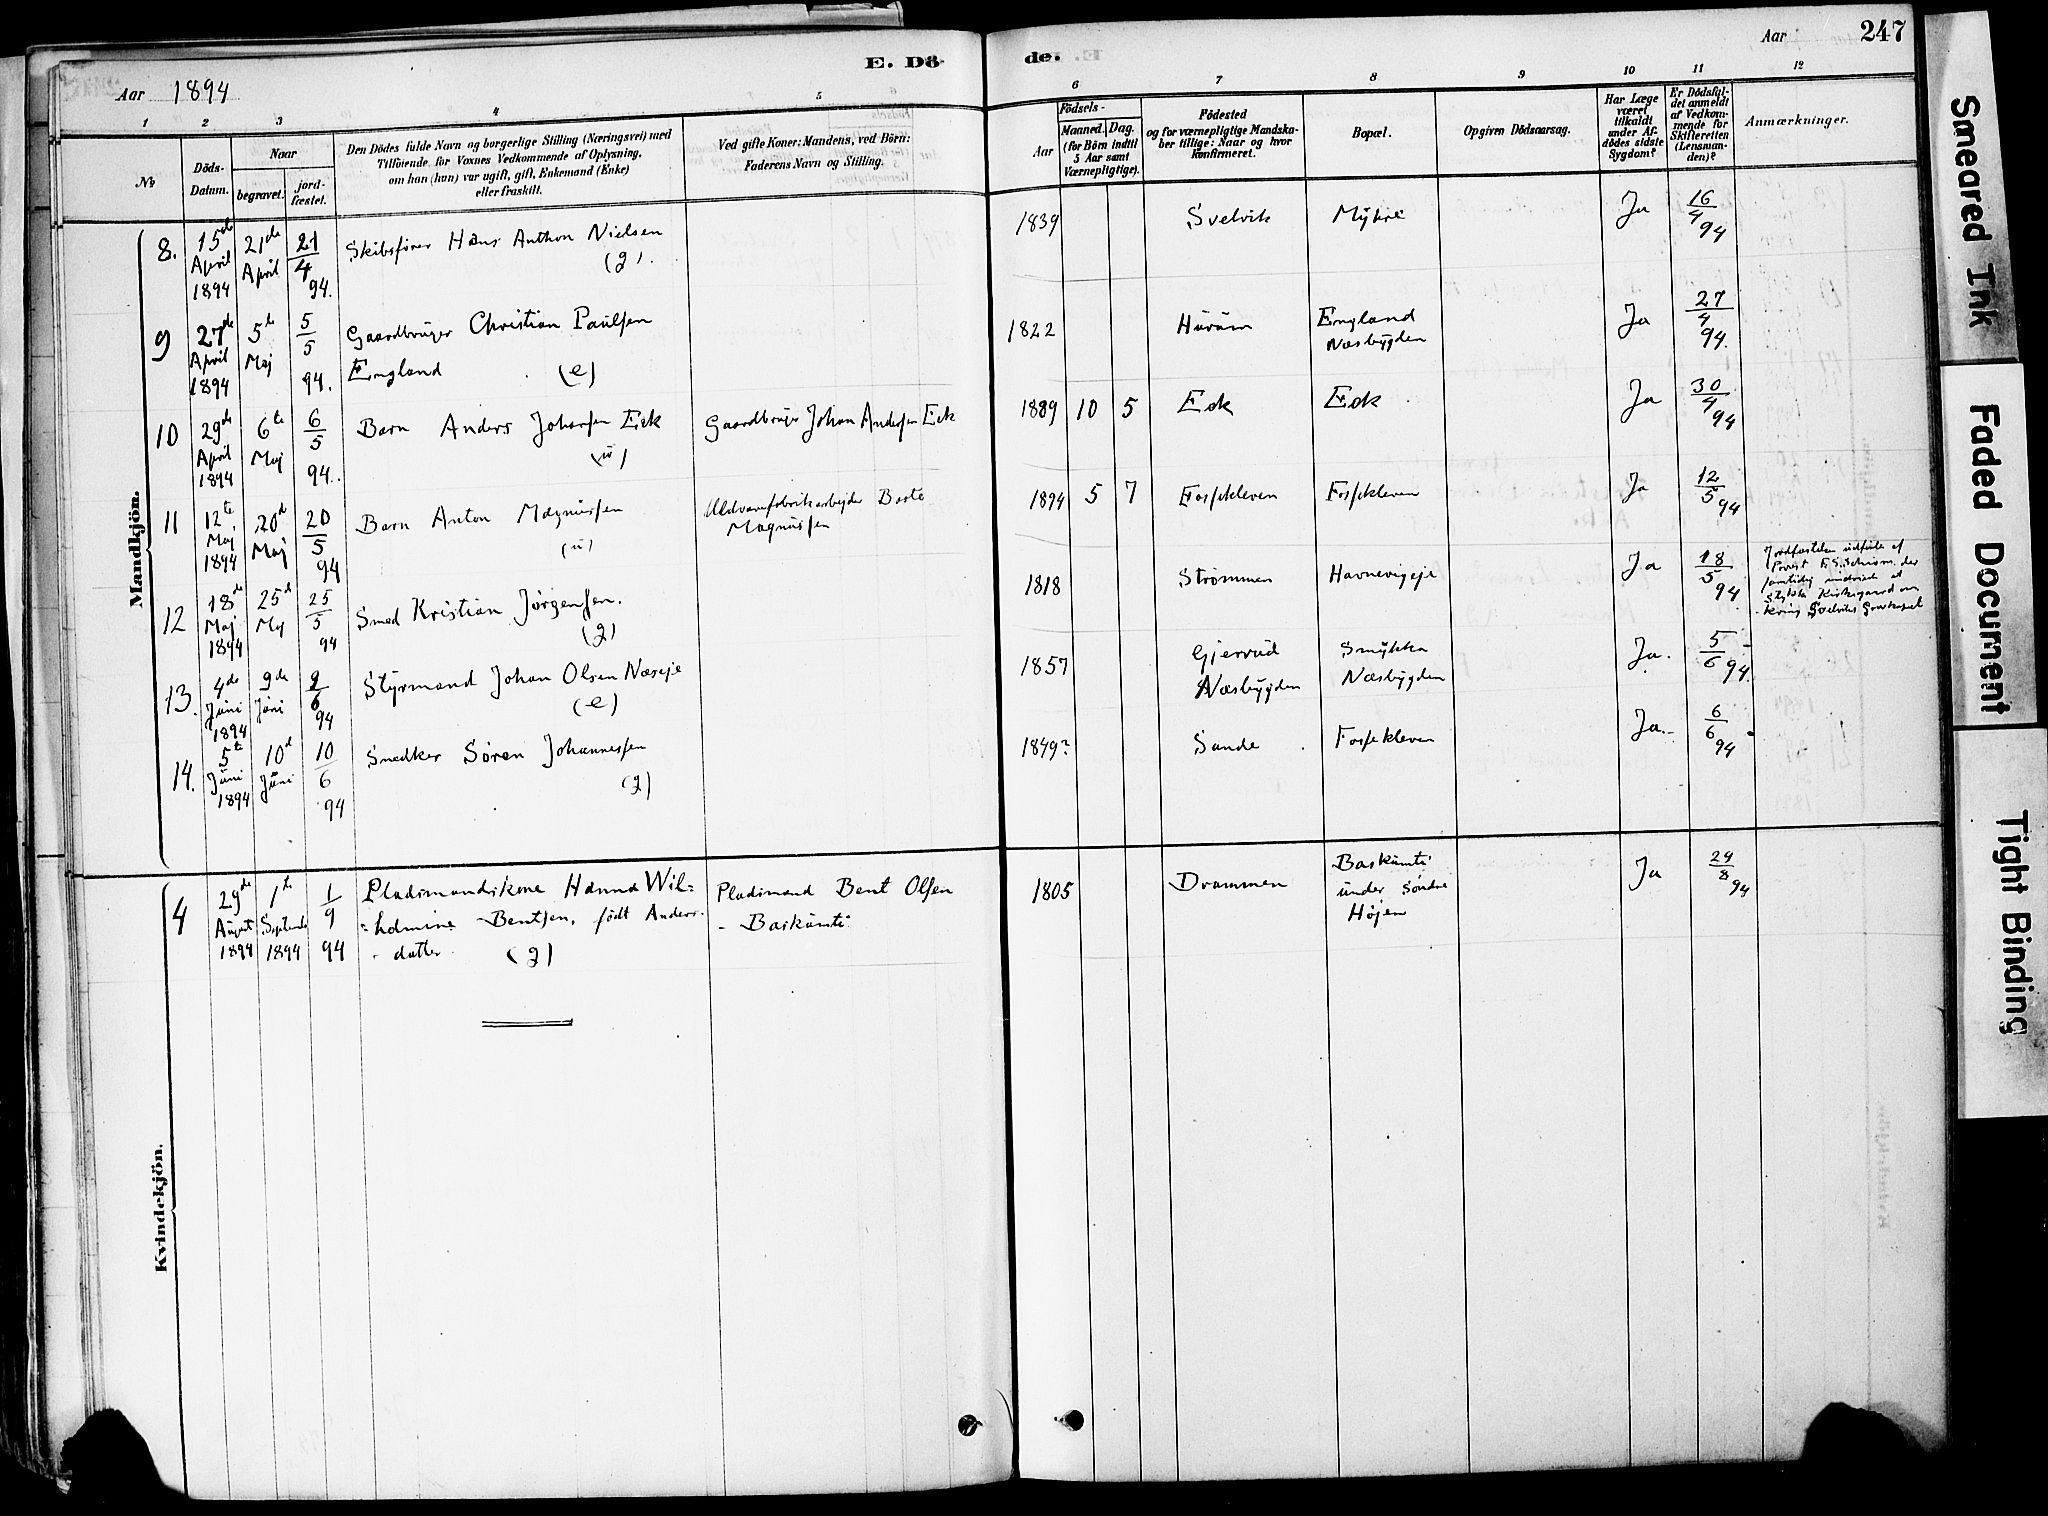 E. Dö-
de.
Aar
247
Aar 1894
1 2 3 4 5 6 7 8 9 10 11 12
№
Döds-
Datum.
Naar
begravet.
jord-
fæstet.
Den Dödes fulde Navn og borgerlige Stilling (Næringsvei) med
Tilföiende for Voxnes Vedkommende af Oplysning,
om han (hun) var ugift, gift, Enkemand (Enke)
eller fraskilt.
Ved gifte Koner: Mandens, ved Börn:
Faderens Navn og Stilling.
Födsels-
Aar
Maaned. Dag.
(for Börn indtil
5 Aar samt
Værnepligtige).
Födested
og for værnepligtige Mandska-
ber tillige: Naar og hvor
konfirmeret.
Bopæl.
Opgiven Dödsaarsag.
Har Læge
været
tilkaldt
under Af-
dödes sidste
Sygdom?
Er Dödsfal-
det anmeldt
af Vedkom-
mende for
Skifteretten
(Lensman-
den)?
Anmærkninger.
Mandkjön.
8. 15de April 1894 21de April 21/4 94. Skibsfører Hans Anthon Nielsen (g). 1839 Svelvik Myhre Ja 16/4 94
9 27de April 1894 5te Maj 5/5 94. Gaardbruger Christian Paulsen
England (e) 1822 Hurum England
Næsbygden Ja 27/4 94.
10 29de April 1894 6te Maj 6/5 94. Barn Anders Johansen Eck (u) Gaardbruger Johan Andersen Eck 1889 10 5 Eck Eck Ja 30/4 94
11 12te Maj 1894 20de Maj 20/5 94 Barn Anton Magnussen (u) Uldvarefabrikarbejder
Magnussen 1894 5 7 Fossekleven Fossekleven Ja 12/5 94
12 18de Maj 1894 25de Maj 25/5 94 Smed Kristian Jørgensen. (g) 1818 Strømmen Havnevigeje Ja 18/5 94
13. 4de Juni 1894 9de Juni 9/6 94 Styrmand Johan Olsen Næseje (e) 1857 Gjerrud
Næsbygden Smukka
Næsbygden Ja. 5/6 94.
14. 5te Juni 1894 10de Juni 10/6 94 Snedker Søren Johannessen (g) 1849? Sande Fossekleven Ja.- 6/6 94
Kvindekjön.
4 29de August 1894 1te September 1894 1/9 94 Pladsmandskone Hanna Wil=
=helmine Bentsen, født Anders-
-datter (g) Pladsmand Bent Olsen
- Baskumti 1805 Drammen Baskumti
under Søndre
Højen Ja 29/8 94
Smeared Ink
Faded Document
Tight Binding